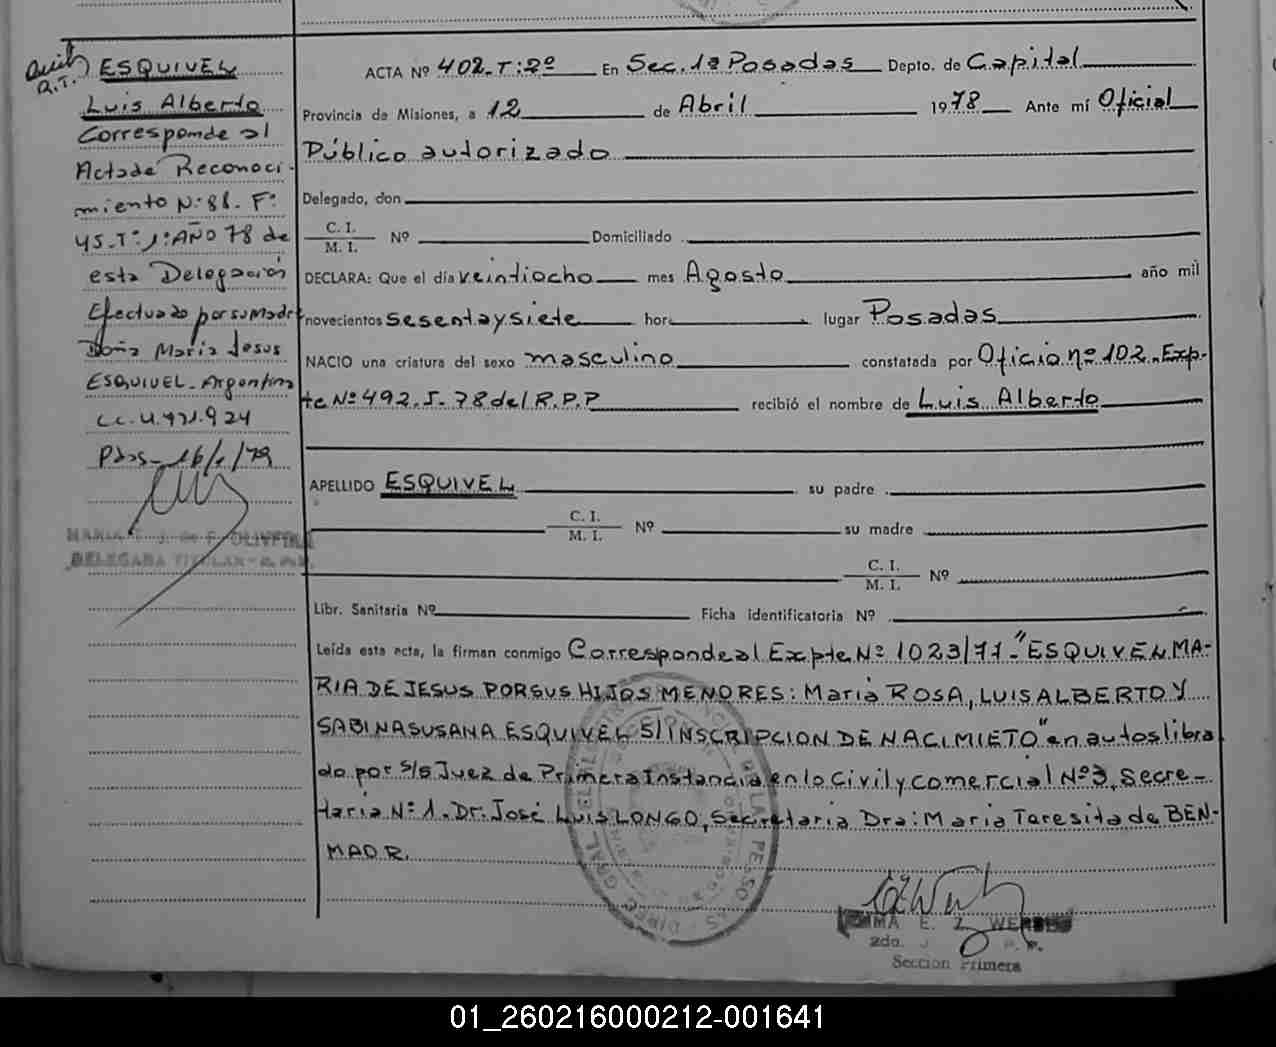 ESQUIVEL
Luis Alberto
Corresponde al
Acta de Reconoci-
miento Nº: 81. Fº
45. Tº: 1º: AÑO 78 de
esta Delegación
Efectuado por su Madre
Doña Maria Jesus
ESQUIVEL. Argentina
Pdas - 16/1/79
OLIVEIRA
DELEGADA TITULAR
ACTA Nº 402. T: 2º En Sec. 1ª Posadas Depto. de Capital
Provincia de Misiones, a 12 de Abril 1978 Ante mí Oficial
Público autorizado
Delegado, don
C. I.
M. I. Nº Domiciliado
DECLARA: Que el día veintiocho mes Agosto año mil
novecientos sesentaysiete hora lugar Posadas
NACIO una criatura del sexo masculino constatada por Oficio nº 102. Exp-
te Nº 492. I. 78 del R.P.P recibió el nombre de Luis Alberto
APELLIDO ESQUIVEL su padre
C. I.
M. I. Nº su madre
C. I.
M. I. Nº
Libr. Sanitaria Nº Ficha identificatoria Nº
Leída esta acta, la firman conmigo Corresponde al Expte Nº 1023/77-"ESQUIVEL MA-
RIA DE JESUS POR SUS HIJOS MENORES: Maria ROSA, LUIS ALBERTO Y
SABINA SUSANA ESQUIVEL S/INSCRIPCION DE NACIMIETO" en autos libra
do por S/S Juez de Primera Instancia en lo Civil y comercial Nº 3, Secre-
taria Nº 1. Dr. José Luis LONGO, Secretaria Dra: Maria Teresita de BEN-
MAOR.
E. Z.
2do.
Sección Primera
01_260216000212-001641